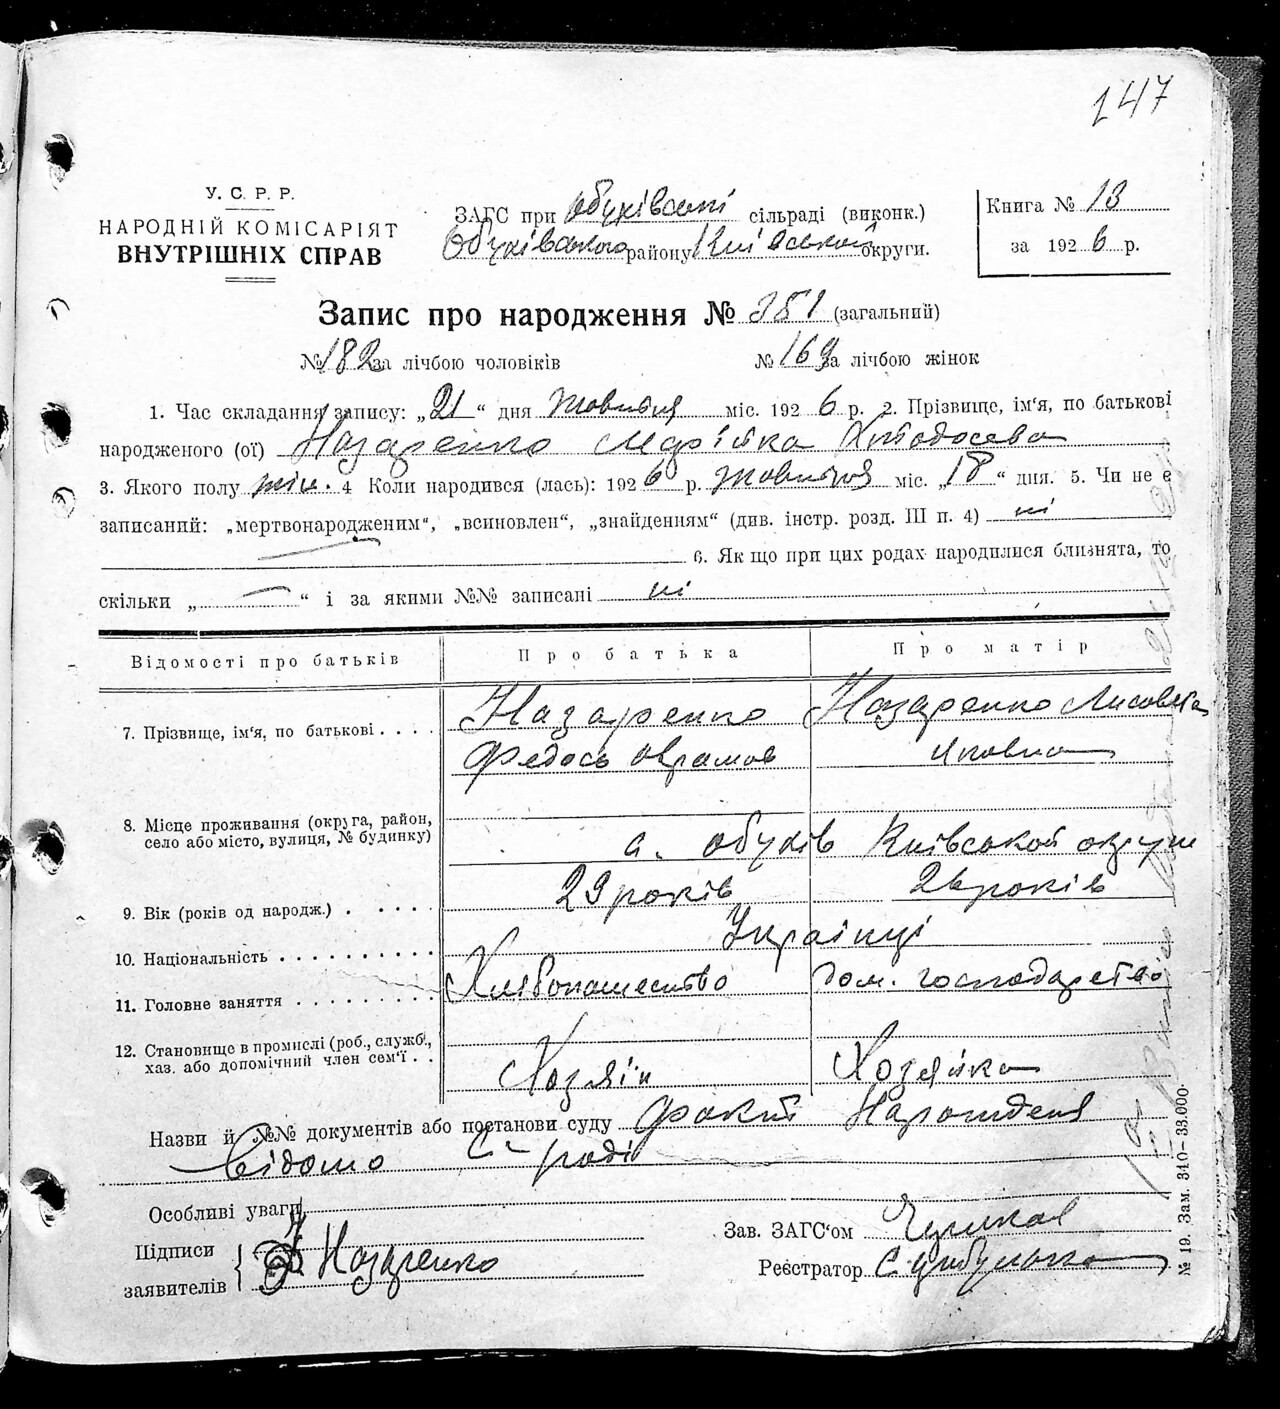 147
У. С. Р. Р.
НАРОДНІЙ КОМІСАРІЯТ
ВНУТРІШНІХ СПРАВ
ЗАГС при Обухівській сільраді (виконк.)
Обухівського району Київської округи.
Книга № 13
за 1926 р.
Запис про народження № 351 (загальний)
№ 182 за лічбою чоловіків № 169 за лічбою жінок
1. Час складання запису: „21“ дня жовтня міс. 1926 р. 2. Прізвище, ім'я, по батькові
народженого (ої) Назаренко Марійка Хтодосєва
3. Якого полу жін. 4 Коли народився (лась): 1926 р. жовтня міс. „18“ дня. 5. Чи не є
записаний: „мертвонародженим“, „всиновлен“, „знайденням“ (див. інстр. розд. III п. 4) ні
6. Як що при цих родах народилися близнята, то
скільки „ — “ і за якими №№ записані ні
Відомості про батьків Про батька Про матір
7. Прізвище, ім'я, по батькові . . . . Назаренко Назаренко Лисовета
Федось Аврамов Яковна
8. Місце проживання (округа, район,
село або місто, вулиця, № будинку) с. Обухів Київської округи
9. Вік (років од народж.) . . . . . 29 років 26 років
10. Національність . . . . . . . . . . Українці
11. Головне заняття . . . . . . . . . Хлібопашество дом. господарство
12. Становище в промислі (роб., служб.,
хаз. або допомічний член сем'ї . . Хозяін Хозяйка
Назви й №№ документів або постанови суду Факт Народженя
Відомо С-раді
Особливі уваги
Підписи
заявителів Назаренко
Зав. ЗАГС'ом
Реєстратор С. Цибулько
№ 19. Зам. 340—33.000.